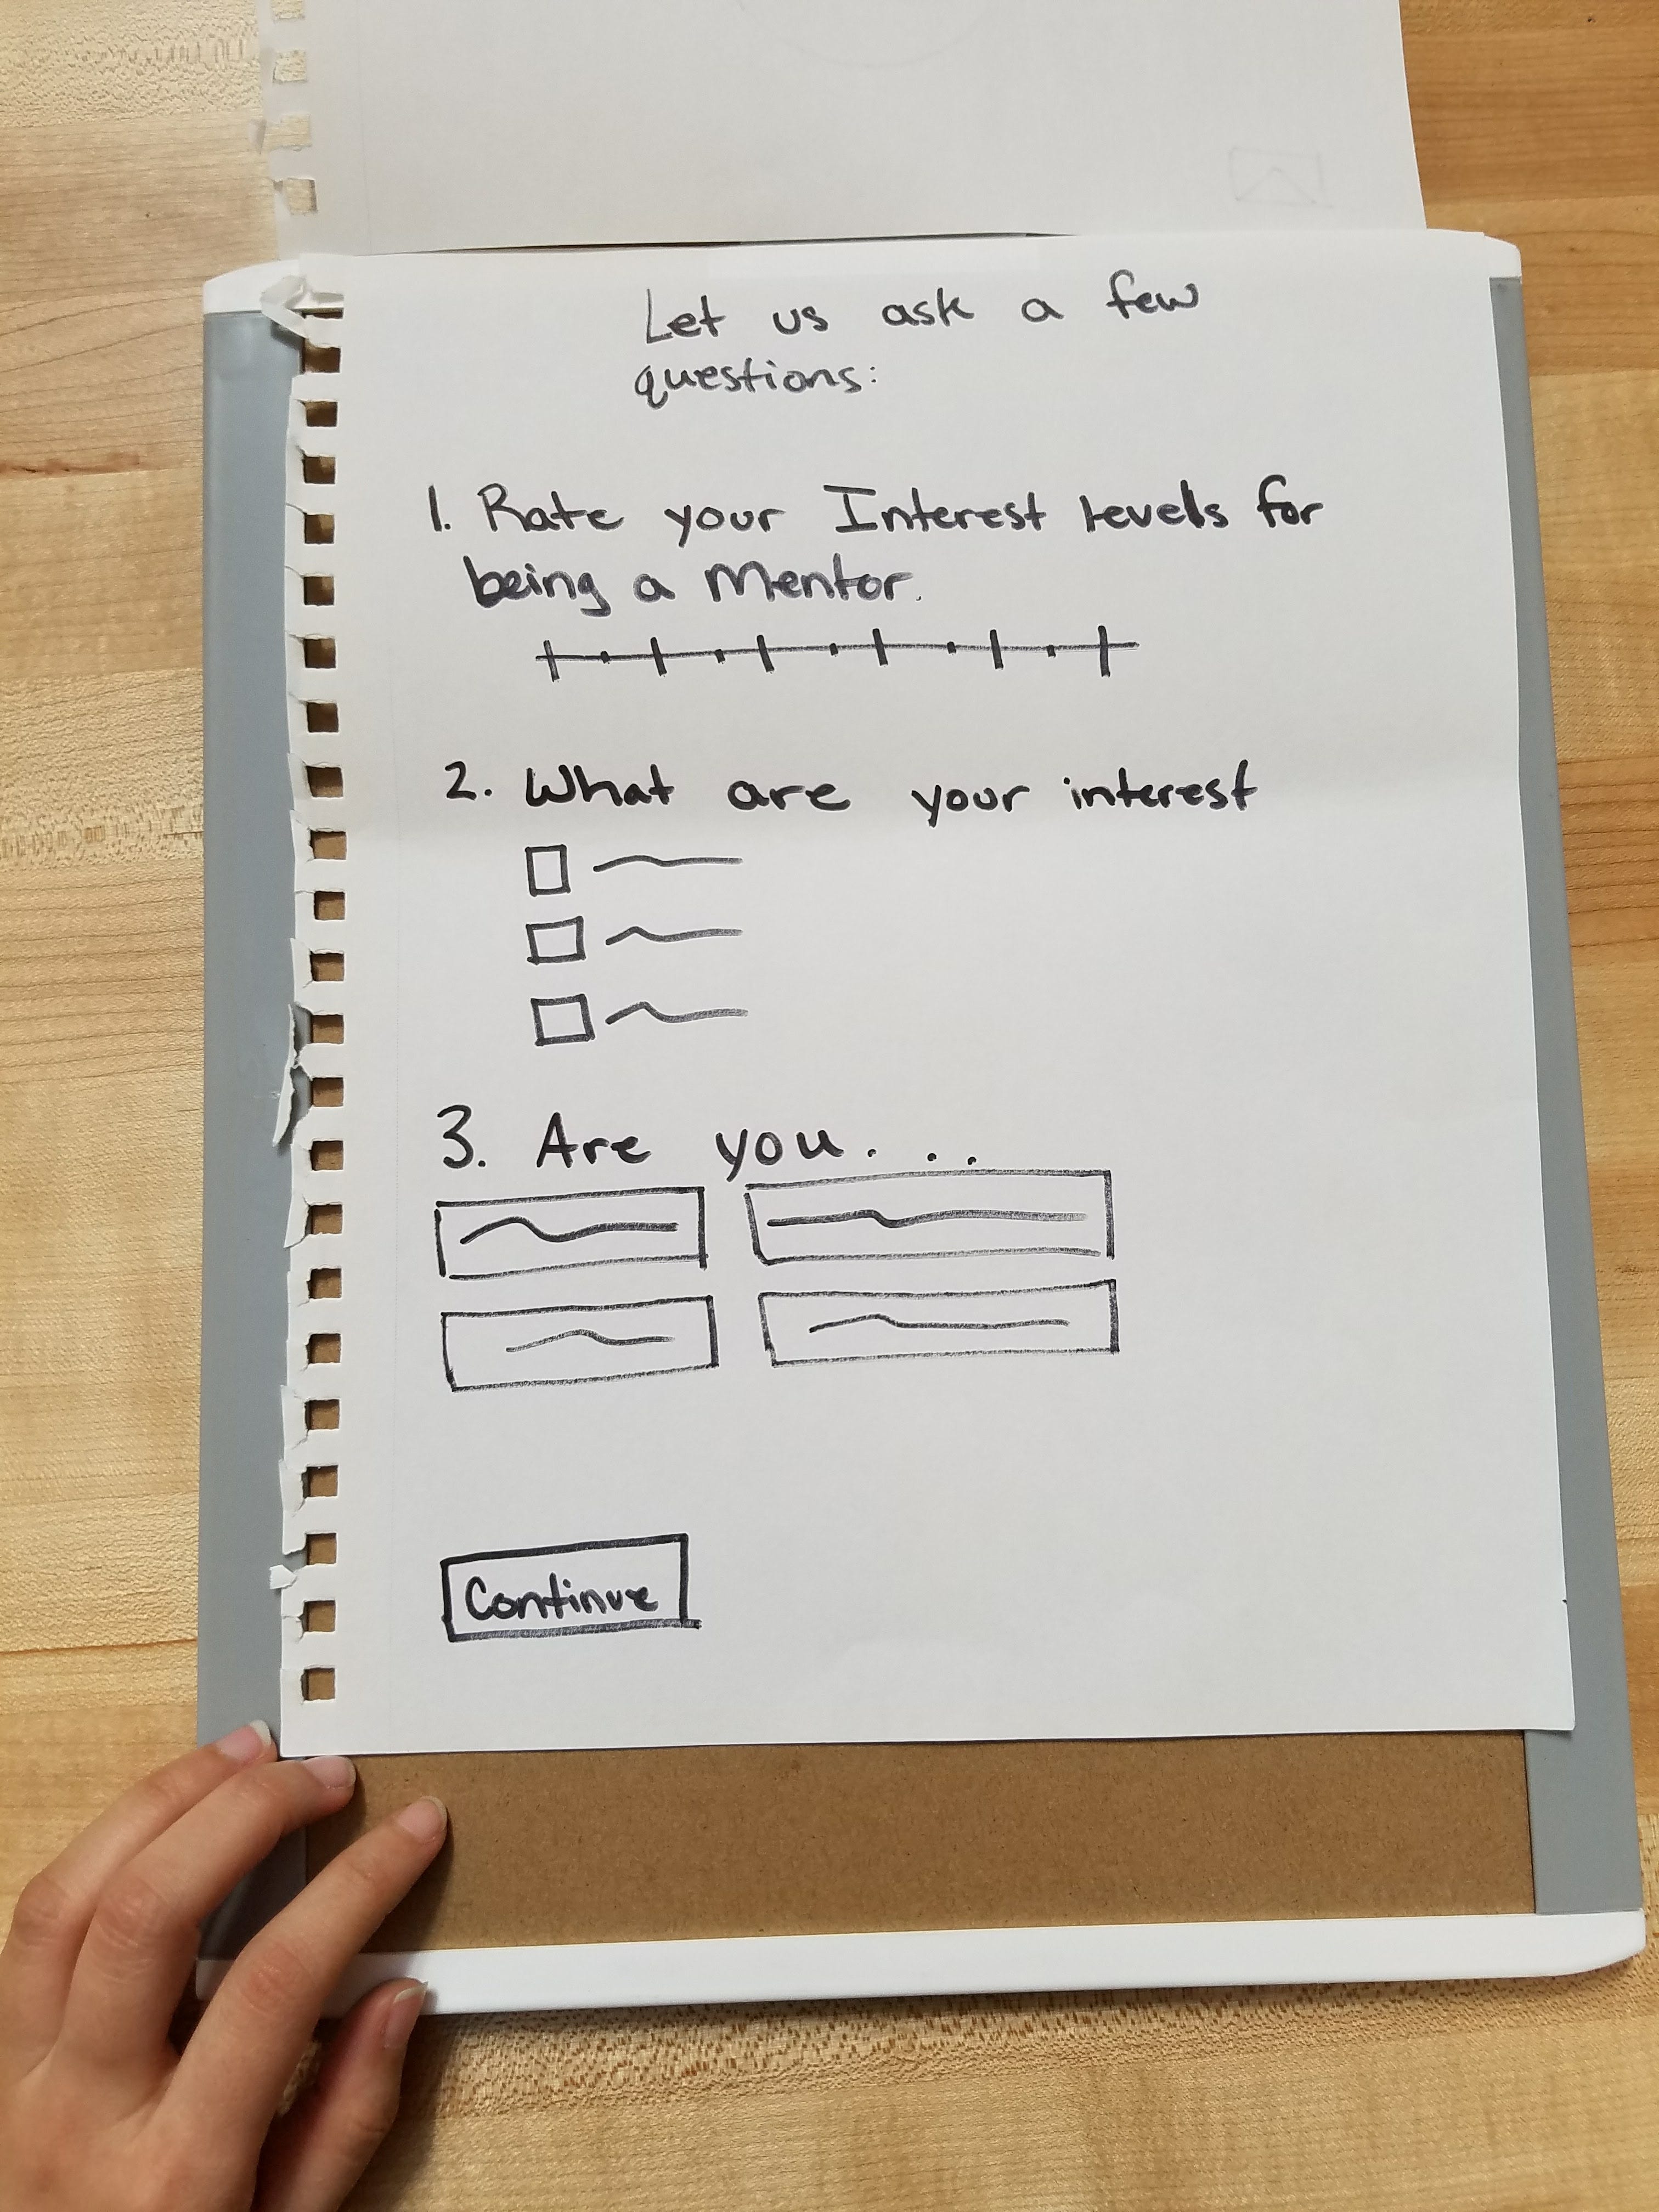 Let us ask a few
questions:
1. Rate your Interest levels for
being a Mentor.
2. What are your interest
3. Are you...
Continue